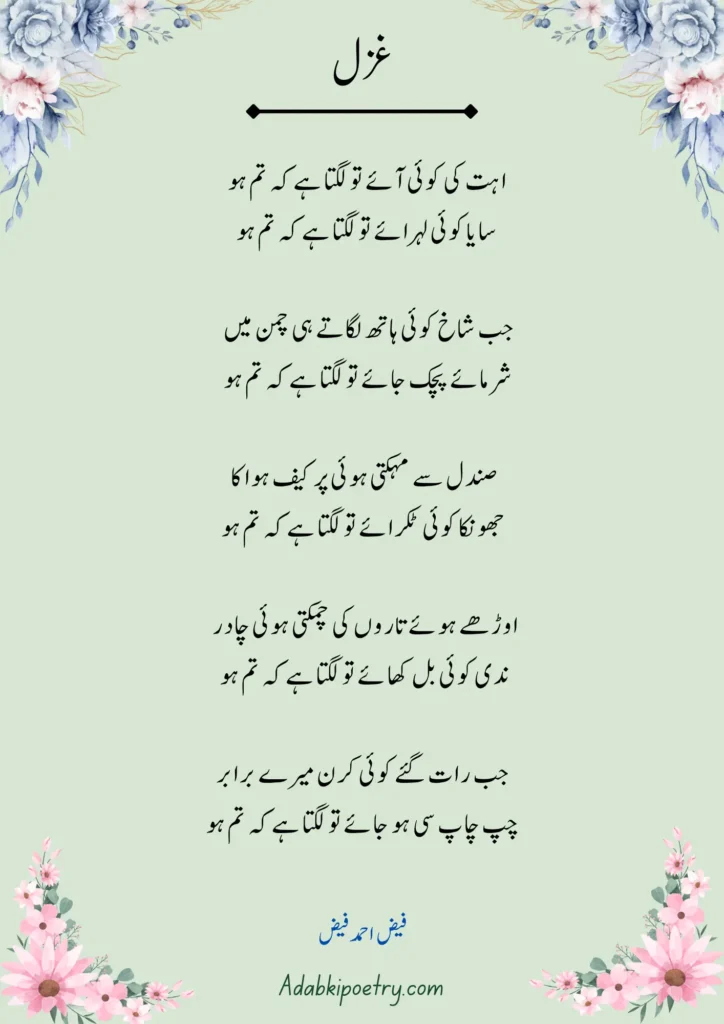 غزل
اہت کی کوئی آئے تو لگتا ہے کہ تم ہو
سایا کوئی لہرائے تو لگتا ہے کہ تم ہو
جب شاخ کوئی ہاتھ لگاتے ہی چمن میں
شرمائے پچک جائے تو لگتا ہے کہ تم ہو
صندل سے مہکتی ہوئی پر کیف ہوا کا
جھونکا کوئی ٹکرائے تو لگتا ہے کہ تم ہو
اوڑھے ہوئے تاروں کی چمکتی ہوئی چادر
ندی کوئی بل کھائے تو لگتا ہے کہ تم ہو
جب رات گئے کوئی کرن میرے برابر
چپ چاپ سی ہو جائے تو لگتا ہے کہ تم ہو
فیض احمد فیض
Adabkipoetry.com